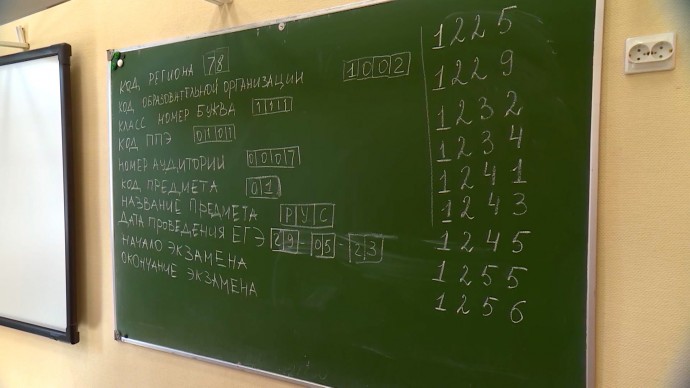 КОД РЕГИОНА 78
КОД ОБРАЗОВАТЕЛЬНОЙ ОРГАНИЗАЦИИ 1002
КЛАСС НОМЕР БУКВА 111
КОД ППЭ 0101
НОМЕР АУДИТОРИИ 0007
КОД ПРЕДМЕТА 01
НАЗВАНИЕ ПРЕДМЕТА РУС
ДАТА ПРОВЕДЕНИЯ ЕГЭ 29-05-23
НАЧАЛО ЭКЗАМЕНА
ОКОНЧАНИЕ ЭКЗАМЕНА
1225
1229
1232
1234
1241
1243
1245
1255
1256